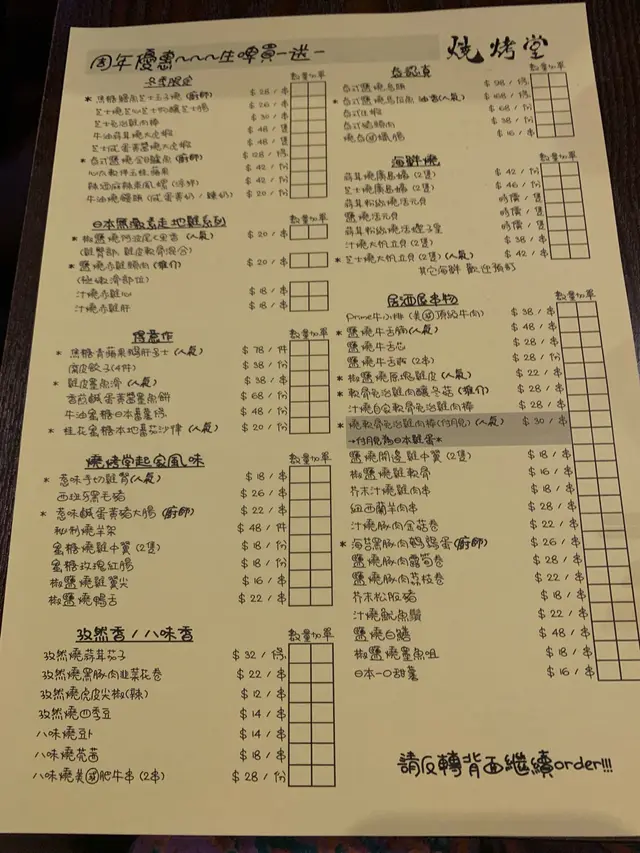 周年優惠~~~生啤買一送一
燒烤堂
冬季限定
數量 加單
* 焦糖鱈魚芝士玉子燒 (廚師) $28 / 串
$26 / 串
芝士免治雞肉棒 $30 / 串
牛油蒜茸燒大虎蝦 $48 / 隻
芝士咸蛋黃醬燒大虎蝦 $48 / 隻
* 台式鹽燒 (廚師) $128 / 條
$42 / 份
$42 / 份
牛油燒饅頭 (咸蛋黃奶 / 煉奶) $20 / 份
日本無激素走地雞系列
數量 加單
* 椒鹽燒 (人氣) $20 / 串
(雞臀部, 雞皮軟骨混合)
* 鹽燒赤雞頸肉 (推介) $20 / 串
(極嫩滑部位)
汁燒赤雞心 $18 / 串
汁燒赤雞肝 $18 / 串
得意作
數量 加單
* 焦糖青蘋果鵝肝多士 (人氣) $78 / 件
腐皮餃子 (4件) $38 / 份
* 雞皮墨魚滑 (人氣) $38 / 串
香煎鹹蛋黃蟹墨魚餅 $68 / 份
牛油蜜糖日本蕃薯 $48 / 份
* 桂花蜜糖本地蕃茄沙律 (人氣) $20 / 份
燒烤堂起家風味
數量 加單
* 惹味手切雞腎 (人氣) $18 / 串
西班牙黑毛豬 $26 / 串
* 惹味鹹蛋黃豬大腸 (廚師) $22 / 串
秘制燒羊架 $48 / 件
蜜糖燒雞中翼 (2隻) $18 / 份
蜜糖玫瑰紅腸 $18 / 份
椒鹽燒雞翼尖 $16 / 串
椒鹽燒鴨舌 $22 / 串
孜然香 / 八味香
數量 加單
孜然燒蒜茸茄子 $32 / 條
孜然燒黑豚肉韭菜花卷 $22 / 串
孜然燒虎皮尖椒 (辣) $12 / 串
孜然燒四季豆 $14 / 串
八味燒豆卜 $14 / 串
八味燒芫茜 $18 / 串
八味燒美國肥牛串 (2串) $28 / 份
台認真
數量 加單
台式鹽燒烏頭 $98 / 條
* 台式鹽燒烏魚 (人氣) $168 / 條
$68 / 份
台式鹽燒 $38 / 份
燒台灣腸 $16 / 串
海鮮燒
數量 加單
蒜茸燒廣島蠔 (2隻) $42 / 份
芝士燒廣島蠔 (2隻) $46 / 份
蒜茸粉絲燒元貝 時價 / 隻
鹽燒元貝 時價 / 隻
蒜茸粉絲燒蟶子皇 時價 / 隻
汁燒大帆立貝 (2隻) $38 / 串
* 芝士燒大帆立貝 (2隻) (人氣) $42 / 串
其它海鮮 歡迎預訂
居酒屋串物
數量 加單
Prime牛小排 (美國頂級牛肉) $38 / 串
* 鹽燒牛舌 (人氣) $48 / 串
鹽燒牛舌芯 $28 / 串
鹽燒牛舌 (2串) $28 / 份
* 椒鹽燒原塊雞皮 (人氣) $22 / 串
* 軟骨免治雞肉釀冬菇 (推介) $28 / 串
汁燒自家軟骨免治雞肉棒 $28 / 串
* 燒軟骨免治雞肉棒 (付月見) (人氣) $30 / 串
→付月見為日本雞蛋*
鹽燒開邊雞中翼 (2隻) $18 / 份
椒鹽燒雞軟骨 $16 / 串
芥末汁燒雞肉串 $18 / 串
紐西蘭羊肉串 $28 / 串
汁燒豚肉金菇卷 $22 / 串
* 海苔黑豚肉鵪鶉蛋 (廚師) $26 / 串
鹽燒豚肉露筍卷 $28 / 串
鹽燒豚肉荔枝卷 $22 / 串
芥末松阪豬 $18 / 串
汁燒魷魚鬚 $22 / 串
鹽燒白鱔 $48 / 串
椒鹽燒墨魚咀 $18 / 串
日本一口甜薯 $16 / 串
請反轉背面繼續order!!!